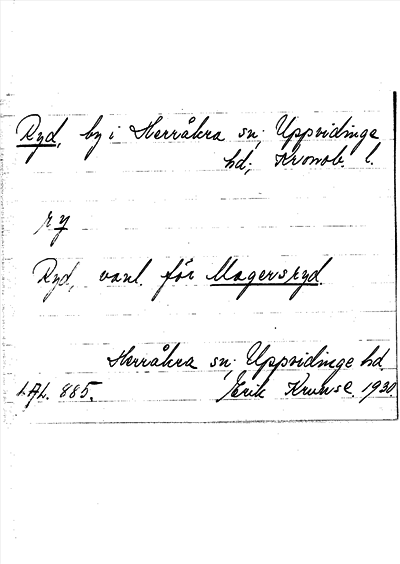 Ryd, by i Herråkra sn; Uppvidinge
hd; Kronob. l.
ry
Ryd, vanl. för Magersryd.
Herråkra sn; Uppvidinge hd.
LAL. 885. Erik Kruuse. 1930.